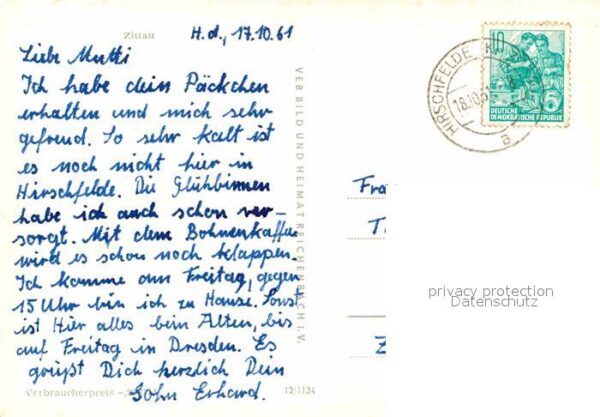 Zittau
H.d., 17.10.61
Liebe Mutti
Ich habe dein Päckchen
erhalten und mich sehr
gefreud. So sehr kalt ist
es noch nicht hier in
Hirschfelde. Die Glühbirnen
habe ich auch schon ver-
sorgt. Mit dem Bohnenkaffee
wird es schon noch klappen.
Ich komme am Freitag, gegen
15 Uhr bin ich zu Hause. Sonst
ist Hier alles beim Alten, bis
auf Freitag in Dresden. Es
grüßt Dich herzlich Dein
Sohn Erhard.
Verbraucherpreis
12/1134
VEB BILD UND HEIMAT REICHENBACH I. V.
HIRSCHFELDE
18.10.61
a
10
DEUTSCHE
DEMOKRATISCHE REPUBLIK
Fra
privacy protection
Datenschutz
Z